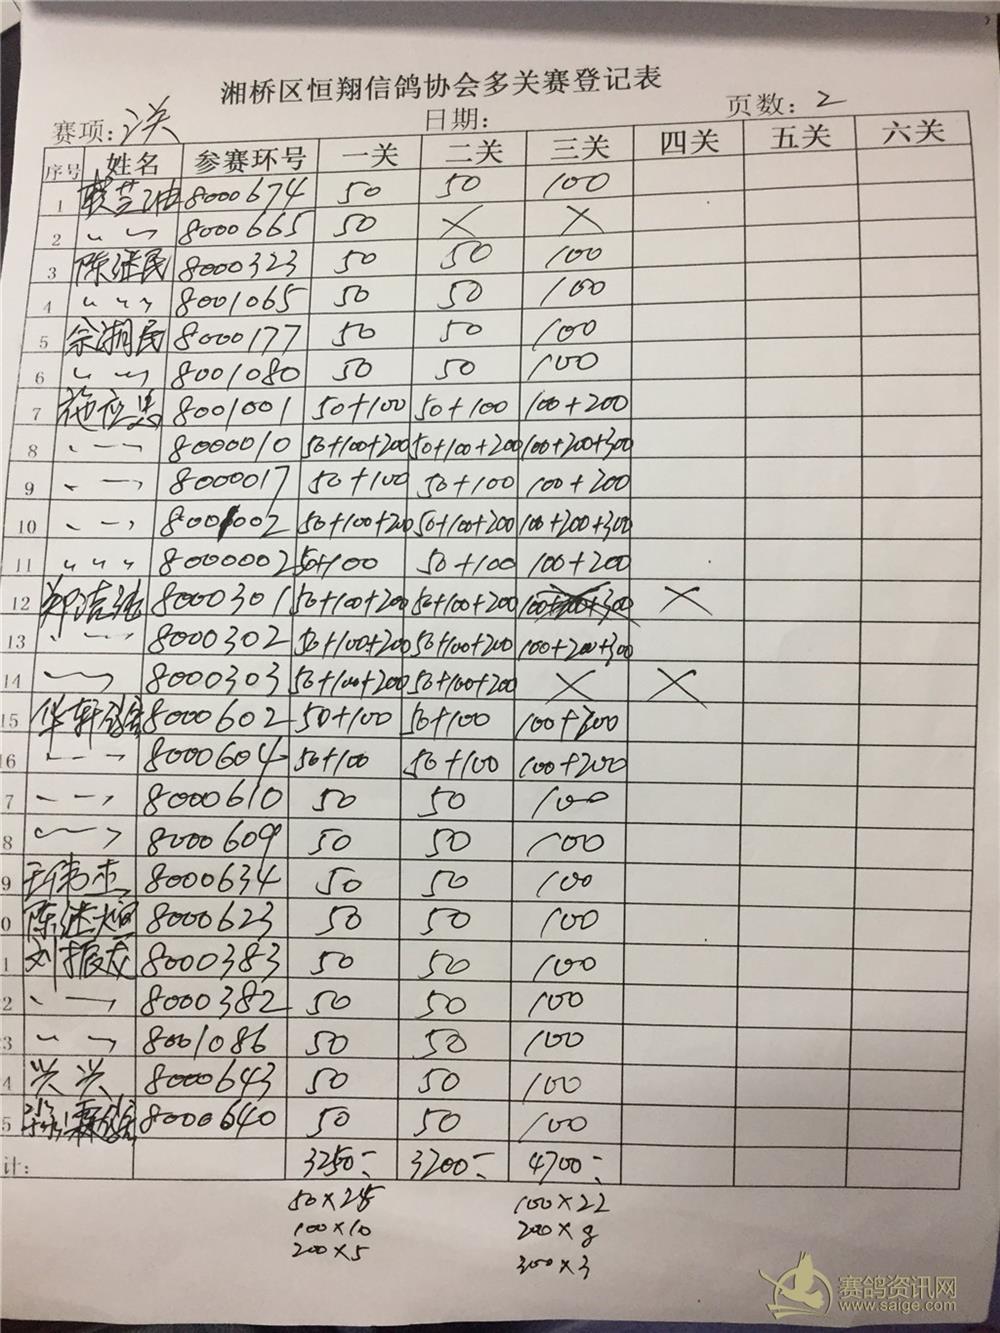 湘桥区恒翔信鸽协会多关赛登记表
赛项: 三关 日期: 页数: 2
序号 姓名 参赛环号 一关 二关 三关 四关 五关 六关
1 8000674 50 50 100
2 〃 〃 8000665 50 × ×
3 陈继民 8000323 50 50 100
4 〃 〃 〃 8001065 50 50 100
5 余湘民 8000177 50 50 100
6 〃 〃 〃 8001080 50 50 100
7 施应忠 8001001 50+100 50+100 100+200
8 〃 〃 8000010 50+100+200 50+100+200 100+200+300
9 〃 〃 8000017 50+100 50+100 100+200
10 〃 〃 8001002 50+100+200 50+100+200 100+200+300
11 〃 〃 〃 8000002 50+100 50+100 100+200
12 8000301 50+100+200 50+100+200 100+200+300 ×
13 〃 〃 8000302 50+100+200 50+100+200 100+200+300
14 〃 〃 8000303 50+100+200 50+100+200 × ×
15 华轩鸽舍 8000602 50+100 50+100 100+200
16 〃 〃 8000604 50+100 50+100 100+200
7 〃 〃 8000610 50 50 100
8 〃 〃 8000609 50 50 100
9 王伟杰 8000634 50 50 100
0 8000623 50 50 100
1 刘振龙 8000383 50 50 100
2 〃 〃 8000382 50 50 100
3 〃 〃 8001086 50 50 100
4 兴兴 8000643 50 50 100
5 8000640 50 50 100
计: 3250 3200 4700
50×25 100×22
100×10 200×8
200×5 300×3
赛鸽资讯网
www.saige.com